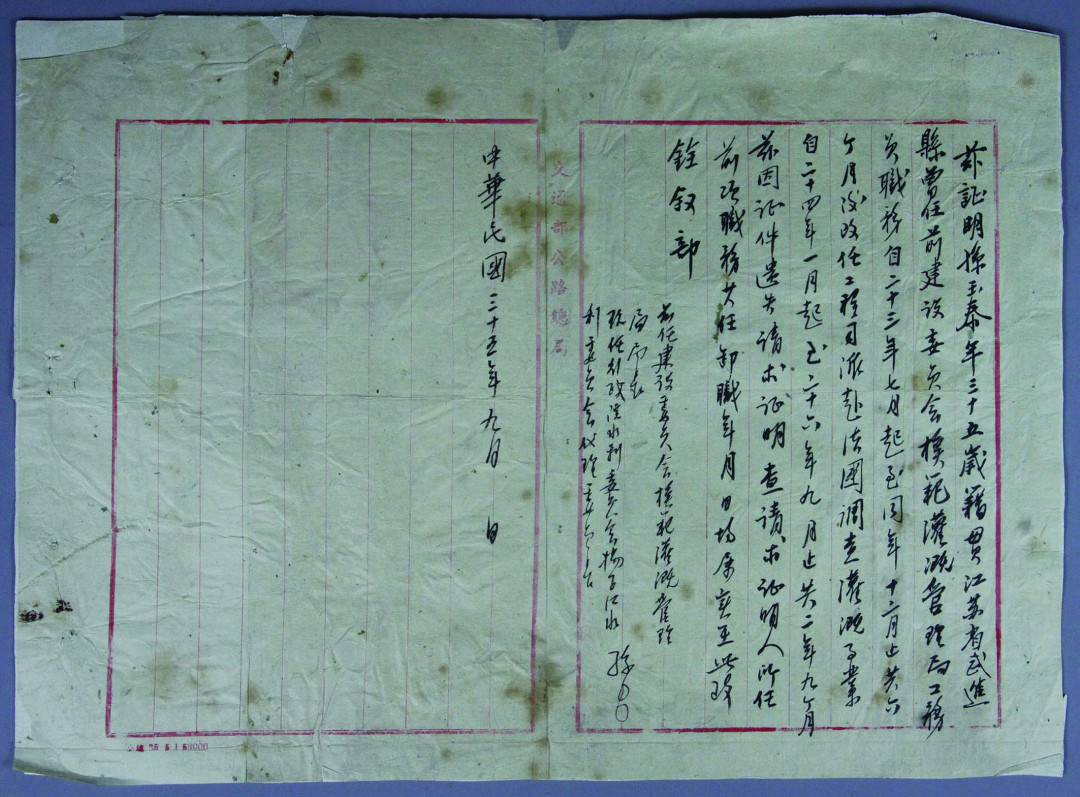 茲証明孫玉泰年三十五歲籍貫江苏省武進
縣曾任前建設委员会模範灌溉管理局工務
员職務自二十三年七月起至同年十二月止共六
个月後改任工程司派赴法國調查灌溉事業
自二十四年一月起至二十六年九月止共二年九个月
茲因证件遺失请求证明查请求证明人所任
前項職務共任卸職年月日均屬實至此致
銓叙部
前任建設委员会模範灌溉管理
局局長
現任行政院水利委员会揚子江水
利委员会
孫
交通部公路總局
中華民國三十五年九月 日